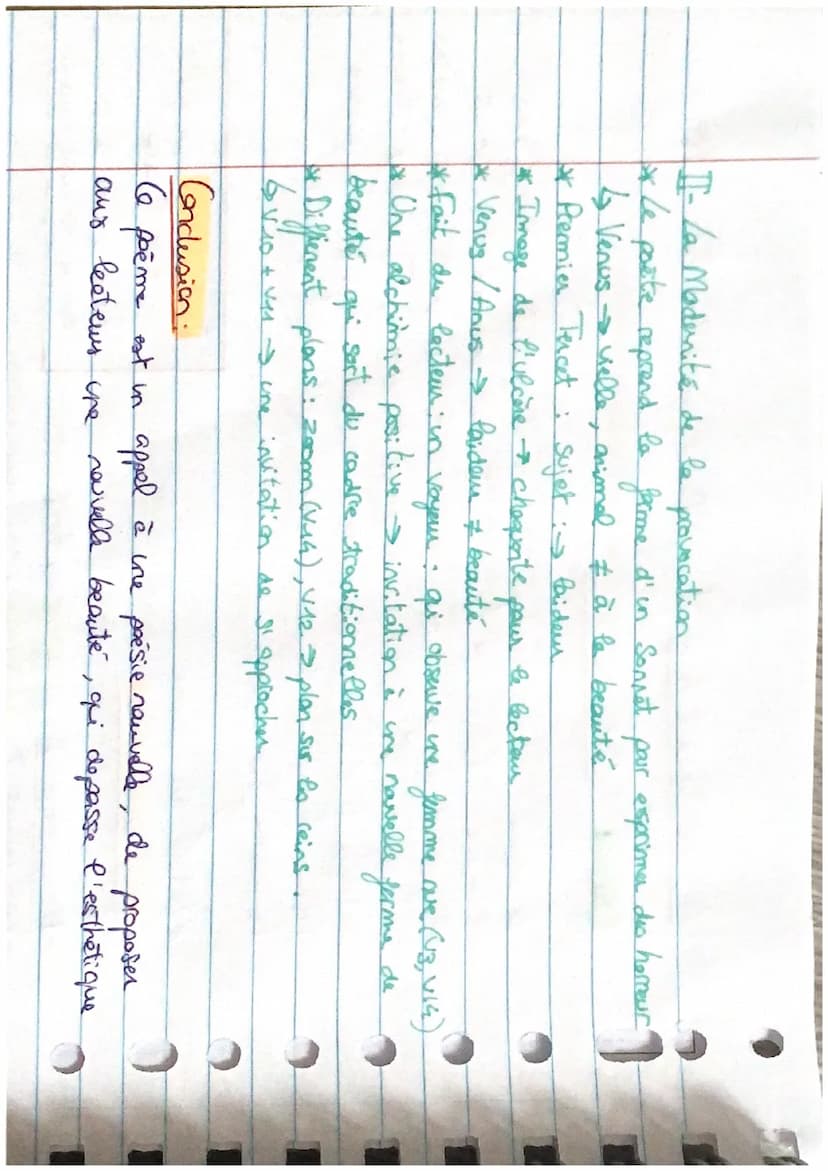 II- La Modernité de la provocation
* Le poète reprend la forme d'un Sonnet pour exprimer du horreur
↳ Venus → vielle, animal ≠ à la beauté
* Premier Tercet : sujet :→ laideur
* Image de l'ulcère → choquante pour le lecteur
* Venus / Anus → laideur ≠ beauté
* Fait du lecteur : un voyeur : qui observe une femme nue (V3, V14)
* Une alchimie positive → invitation à une nouvelle forme de
beauté qui sort du cadre traditionnelles
* Différent plans : zoom (V14), V12 → plan sur les reins.
↳ V10 + V11 → une invitation de s'approcher
Conclusion :
Ce poème est un appel à une poésie nouvelle, de proposer
aux lecteurs une nouvelle beauté, qui dépasse l'esthétique